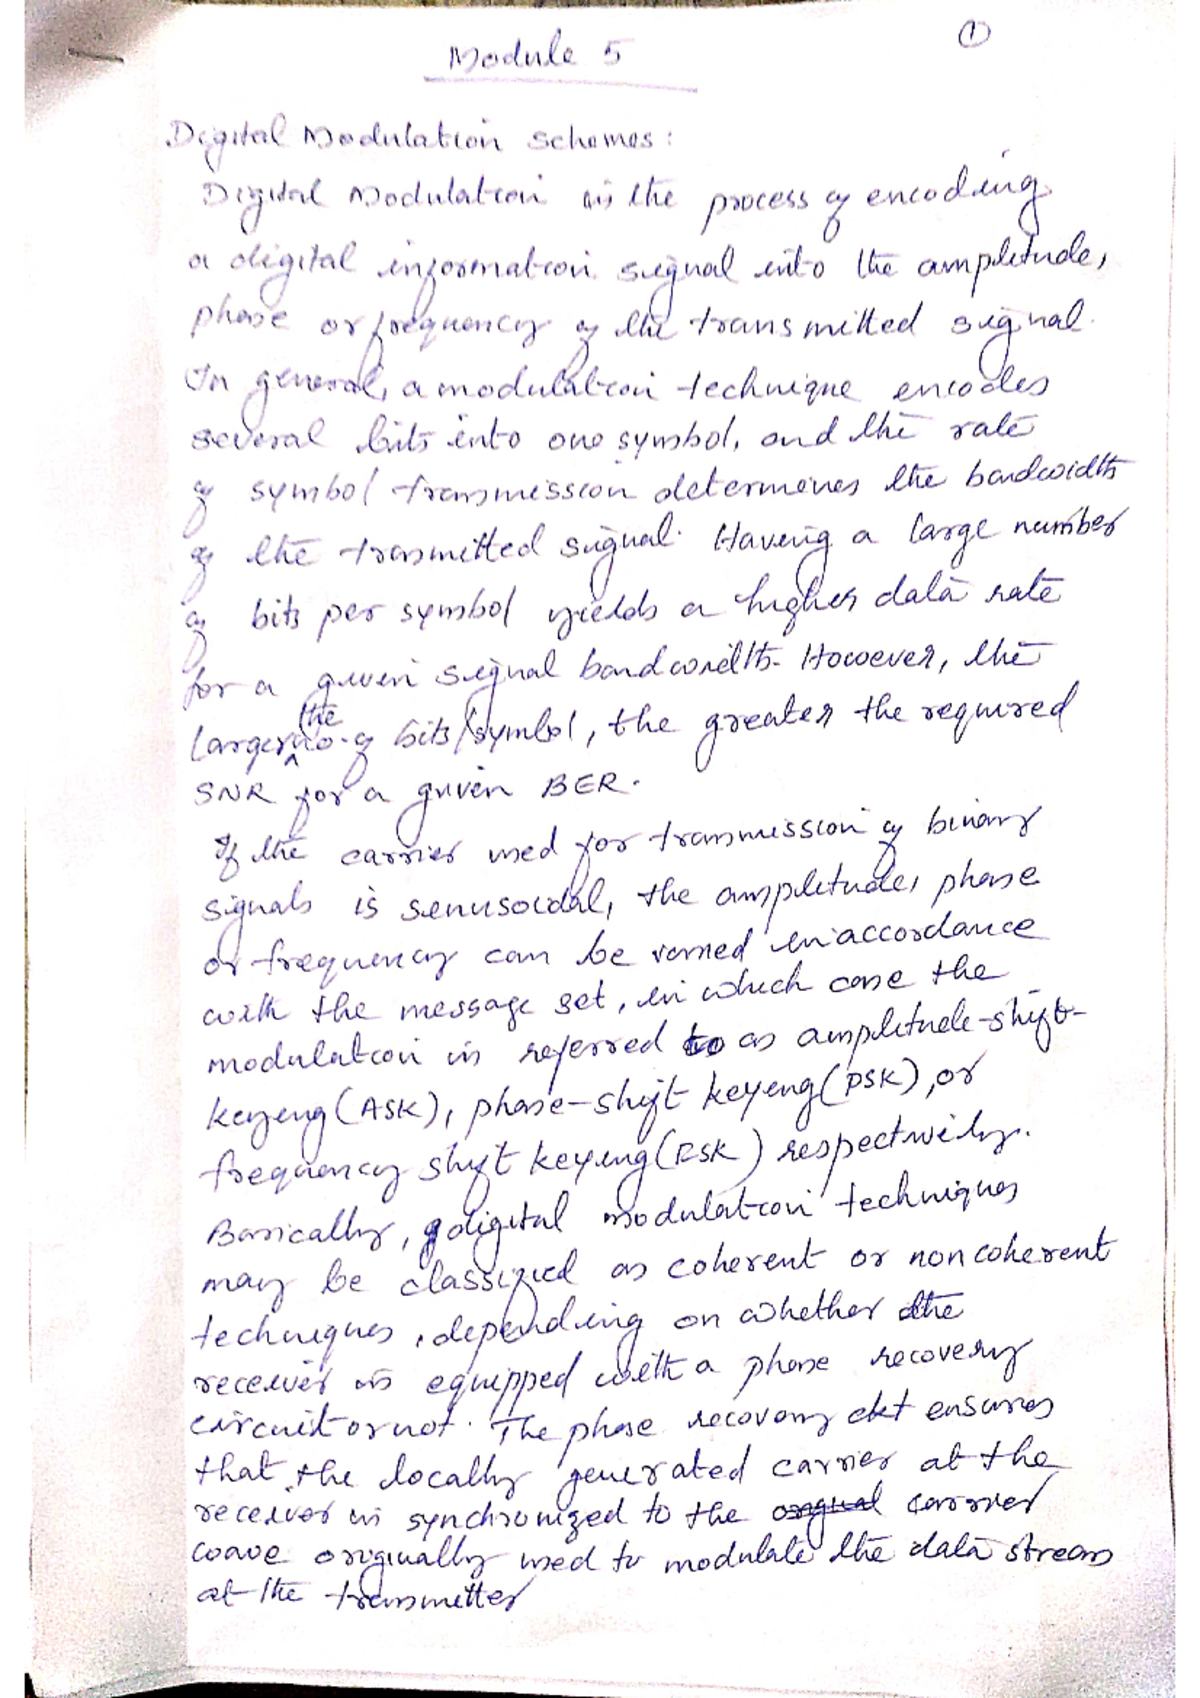 ①
Module 5
Digital Modulation Schemes:
Digital Modulation is the process of encoding
a digital information signal into the amplitude,
phase or frequency of the transmitted signal.
In general, a modulation technique encodes
several bits into one symbol, and the rate
of symbol transmission determines the bandwidth
of the trasmitted signal. Having a large number
of bits per symbol yields a higher data rate
for a given signal bandwidth. However, the
larger the no. of bits/symbol, the greater the required
SNR for a given BER.
If the carrier used for transmission of binary
signals is sinusoidal, the amplitude, phase
or frequency can be varied in accordance
with the message set, in which case the
modulation is referred to as amplitude-shift-
keying (ASK), phase-shift keying (PSK), or
frequency shift keying (FSK) respectively.
Basically, digital modulation techniques
may be classified as coherent or noncoherent
techniques, depending on whether the
receiver is equipped with a phase recovery
circuit or not. The phase recovery ckt ensures
that the locally generated carrier at the
receiver is synchronized to the original carrier
wave originally used to modulate the data stream
at the transmitter